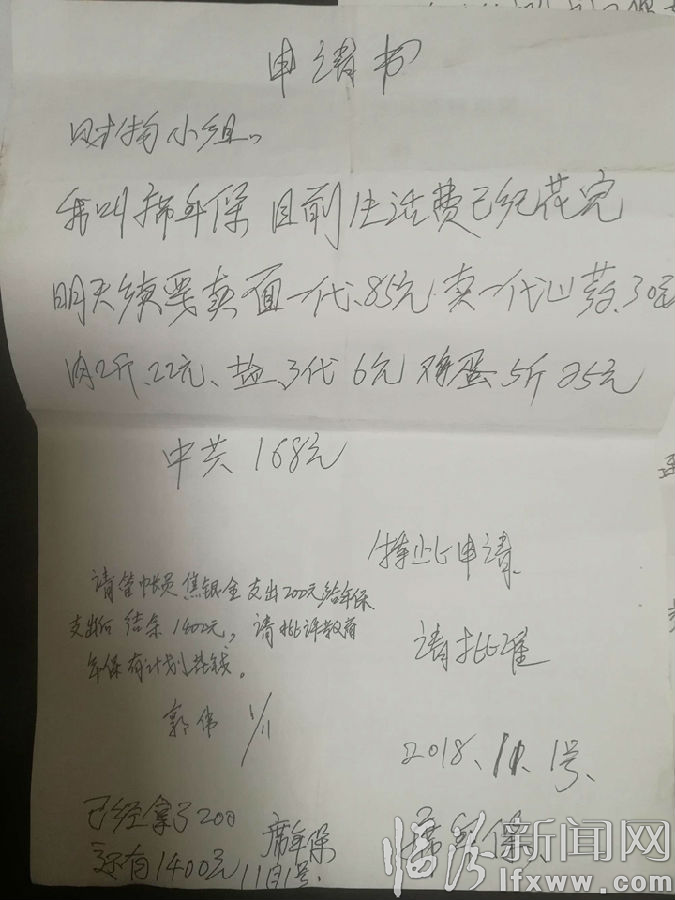 申请书
财物小组。
我叫席年保 目前生活费已纪花完
明天续要卖面一代、85元.卖一代山药、30元
肉2斤、22元、盐、3代 6元 鸡蛋5斤25元
中共168元
特此申请.
请批准
2018、11、1号、
席年保
请管帐员焦银全支出200元给年保.
支出后 结余1400元，请批评教育
年保有计划花钱。
郭伟 1/11
已经拿了200
还有1400元
席年保
11月1号.
临汾新闻网
lfxww.com